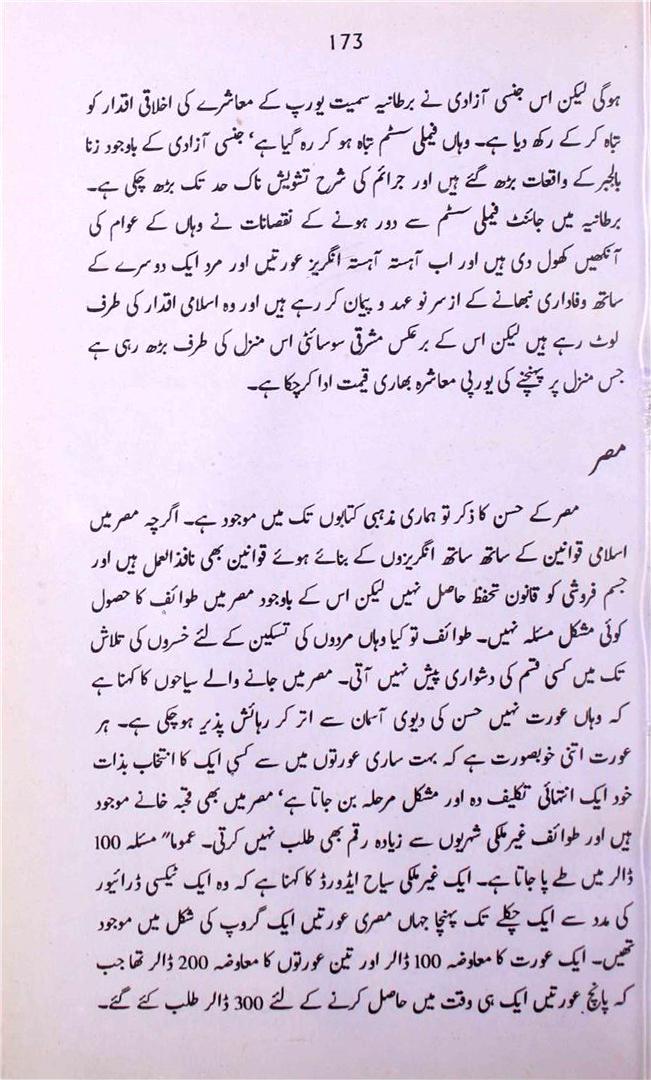 173
ہوگی لیکن اس جنسی آزادی نے برطانیہ سمیت یورپ کے معاشرے کی اخلاقی اقدار کو
تباہ کر کے رکھ دیا ہے۔ وہاں فیملی سسٹم تباہ ہو کر رہ گیا ہے‘ جنسی آزادی کے باوجود زنا
بالجبر کے واقعات بڑھ گئے ہیں اور جرائم کی شرح تشویش ناک حد تک بڑھ چکی ہے۔
برطانیہ میں جائنٹ فیملی سسٹم سے دور ہونے کے نقصانات نے وہاں کے عوام کی
آنکھیں کھول دی ہیں اور اب آہستہ آہستہ انگریز عورتیں اور مرد ایک دوسرے کے
ساتھ وفاداری نبھانے کے ازسرنو عہد و پیمان کر رہے ہیں اور وہ اسلامی اقدار کی طرف
لوٹ رہے ہیں لیکن اس کے برعکس مشرقی سوسائٹی اس منزل کی طرف بڑھ رہی ہے
جس منزل پر پہنچنے کی یورپی معاشرہ بھاری قیمت ادا کرچکا ہے۔
مصر
مصر کے حسن کا ذکر تو ہماری مذہبی کتابوں تک میں موجود ہے۔ اگرچہ مصر میں
اسلامی قوانین کے ساتھ ساتھ انگریزوں کے بنائے ہوئے قوانین بھی نافذالعمل ہیں اور
جسم فروشی کو قانون تحفظ حاصل نہیں لیکن اس کے باوجود مصر میں طوائف کا حصول
کوئی مشکل مسئلہ نہیں۔ طوائف تو کیا وہاں مردوں کی تسکین کے لئے خسروں کی تلاش
تک میں کسی قسم کی دشواری پیش نہیں آتی۔ مصر میں جانے والے سیاحوں کا کہنا ہے
کہ وہاں عورت نہیں حسن کی دیوی آسمان سے اتر کر رہائش پذیر ہوچکی ہے۔ ہر
عورت اتنی خوبصورت ہے کہ بہت ساری عورتوں میں سے کسی ایک کا انتخاب بذات
خود ایک انتہائی تکلیف دہ اور مشکل مرحلہ بن جاتا ہے‘ مصر میں بھی قحبہ خانے موجود
ہیں اور طوائف غیرملکی شہریوں سے زیادہ رقم بھی طلب نہیں کرتی۔ عموما″ مسئلہ 100
ڈالر میں طے پا جاتا ہے۔ ایک غیر ملکی سیاح ایڈورڈ کا کہنا ہے کہ وہ ایک ٹیکسی ڈرائیور
کی مدد سے ایک چکلے تک پہنچا جہاں مصری عورتیں ایک گروپ کی شکل میں موجود
تھیں۔ ایک عورت کا معاوضہ 100 ڈالر اور تین عورتوں کا معاوضہ 200 ڈالر تھا جب
کہ پانچ عورتیں ایک ہی وقت میں حاصل کرنے کے لئے 300 ڈالر طلب کئے گئے۔